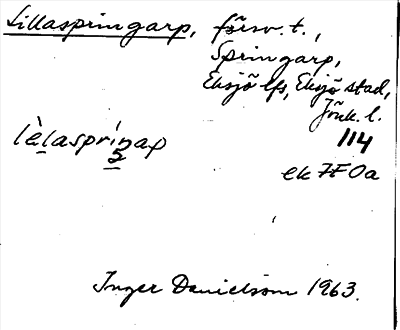 Lillaspringarp, försv. t.,
Springarp,
Eksjö lfs, Eksjö stad,
Jönk. l.
lèlaspríŋap
2
114
ek 7F0a
Inger Danielsson 1963.